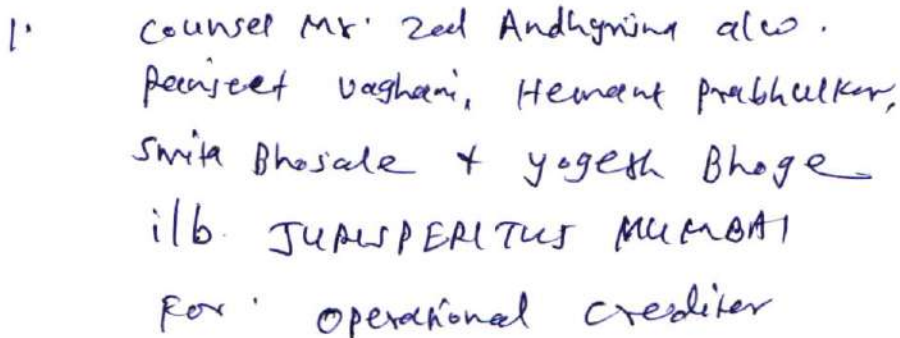 1. Counsel Mr. Zed Andhyarina a/w.
Ranjeet Vaghani, Hemant Prabhulkar,
Smita Bhosale & Yogesh Bhoge
i/b. JURISPERITUS MUMBAI
For. Operational Creditor